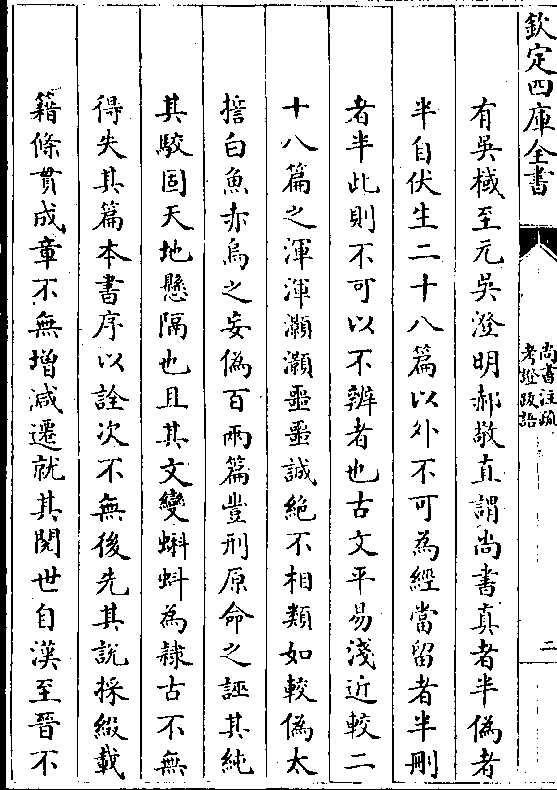 欽定四庫全書
尚書注疏
考證跋語
二
有吳棫至元吳澄明郝敬直謂尚書真者半偽者
半自伏生二十八篇以外不可為經當留者半刪
者半此則不可以不辨者也古文平易淺近較二
十八篇之渾渾灝灝噩噩誠絶不相類如較偽太
誓白魚赤烏之妄偽百兩篇豐刑原命之誣其純
其駮固天地懸隔也且其文變蝌蚪為隷古不無
得失其篇本書序以詮次不無後先其說採綴載
籍條貫成章不無增減遷就其閱世自漢至晉不